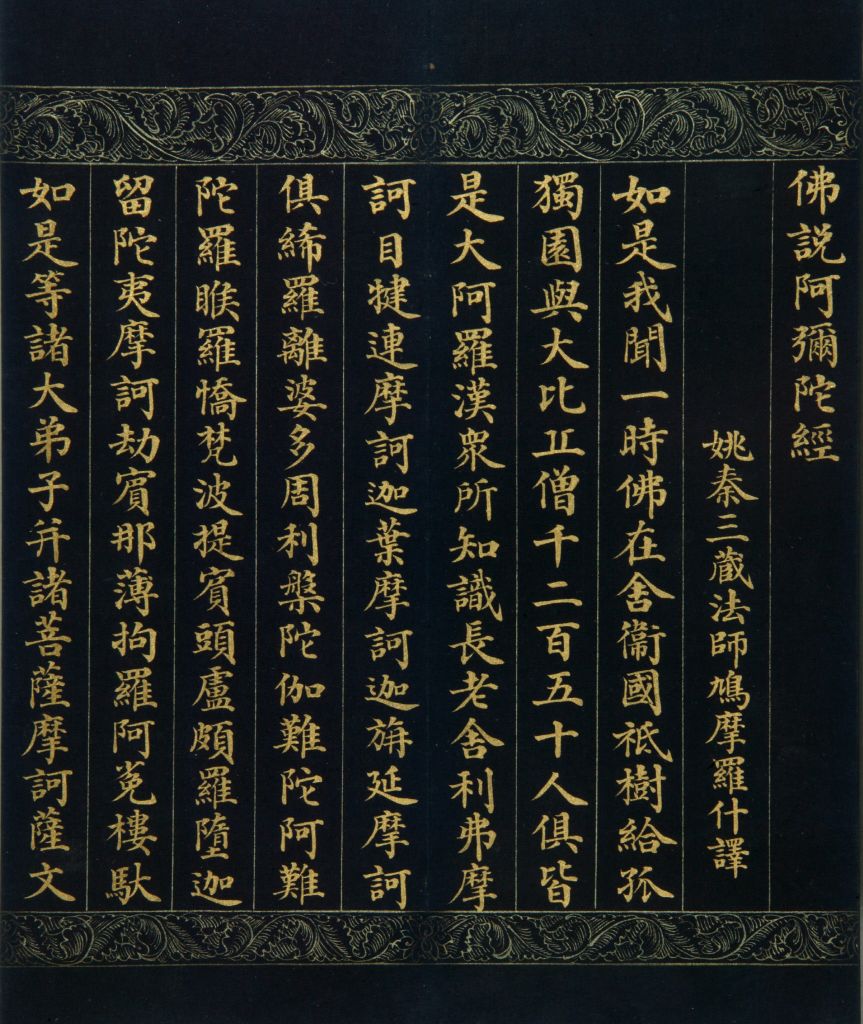 佛說阿彌陀經
姚秦三藏法師鳩摩羅什譯
如是我聞一時佛在舍衞國祇樹給孤
獨園與大比丘僧千二百五十人俱皆
是大阿羅漢衆所知識長老舍利弗摩
訶目犍連摩訶迦葉摩訶迦旃延摩訶
俱絺羅離婆多周利槃陀伽難陀阿難
陀羅睺羅憍梵波提賓頭盧頗羅墮迦
留陀夷摩訶劫賓那薄拘羅阿㝹樓馱
如是等諸大弟子并諸菩薩摩訶薩文